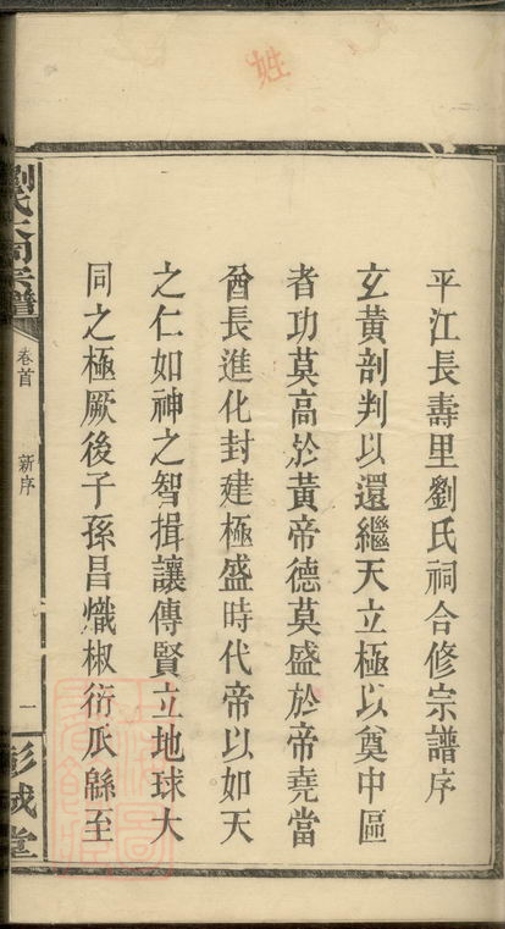 姓
平江長壽里劉氏祠合修宗譜序
玄黃剖判以還繼天立極以奠中區
者功莫高於黃帝德莫盛於帝堯當
酋長進化封建極盛時代帝以如天
之仁如神之智揖讓傳賢立地球大
同之極厥後子孫昌熾椒衍瓜緜至
劉氏大同宗譜
卷首
新序
一
彭城堂